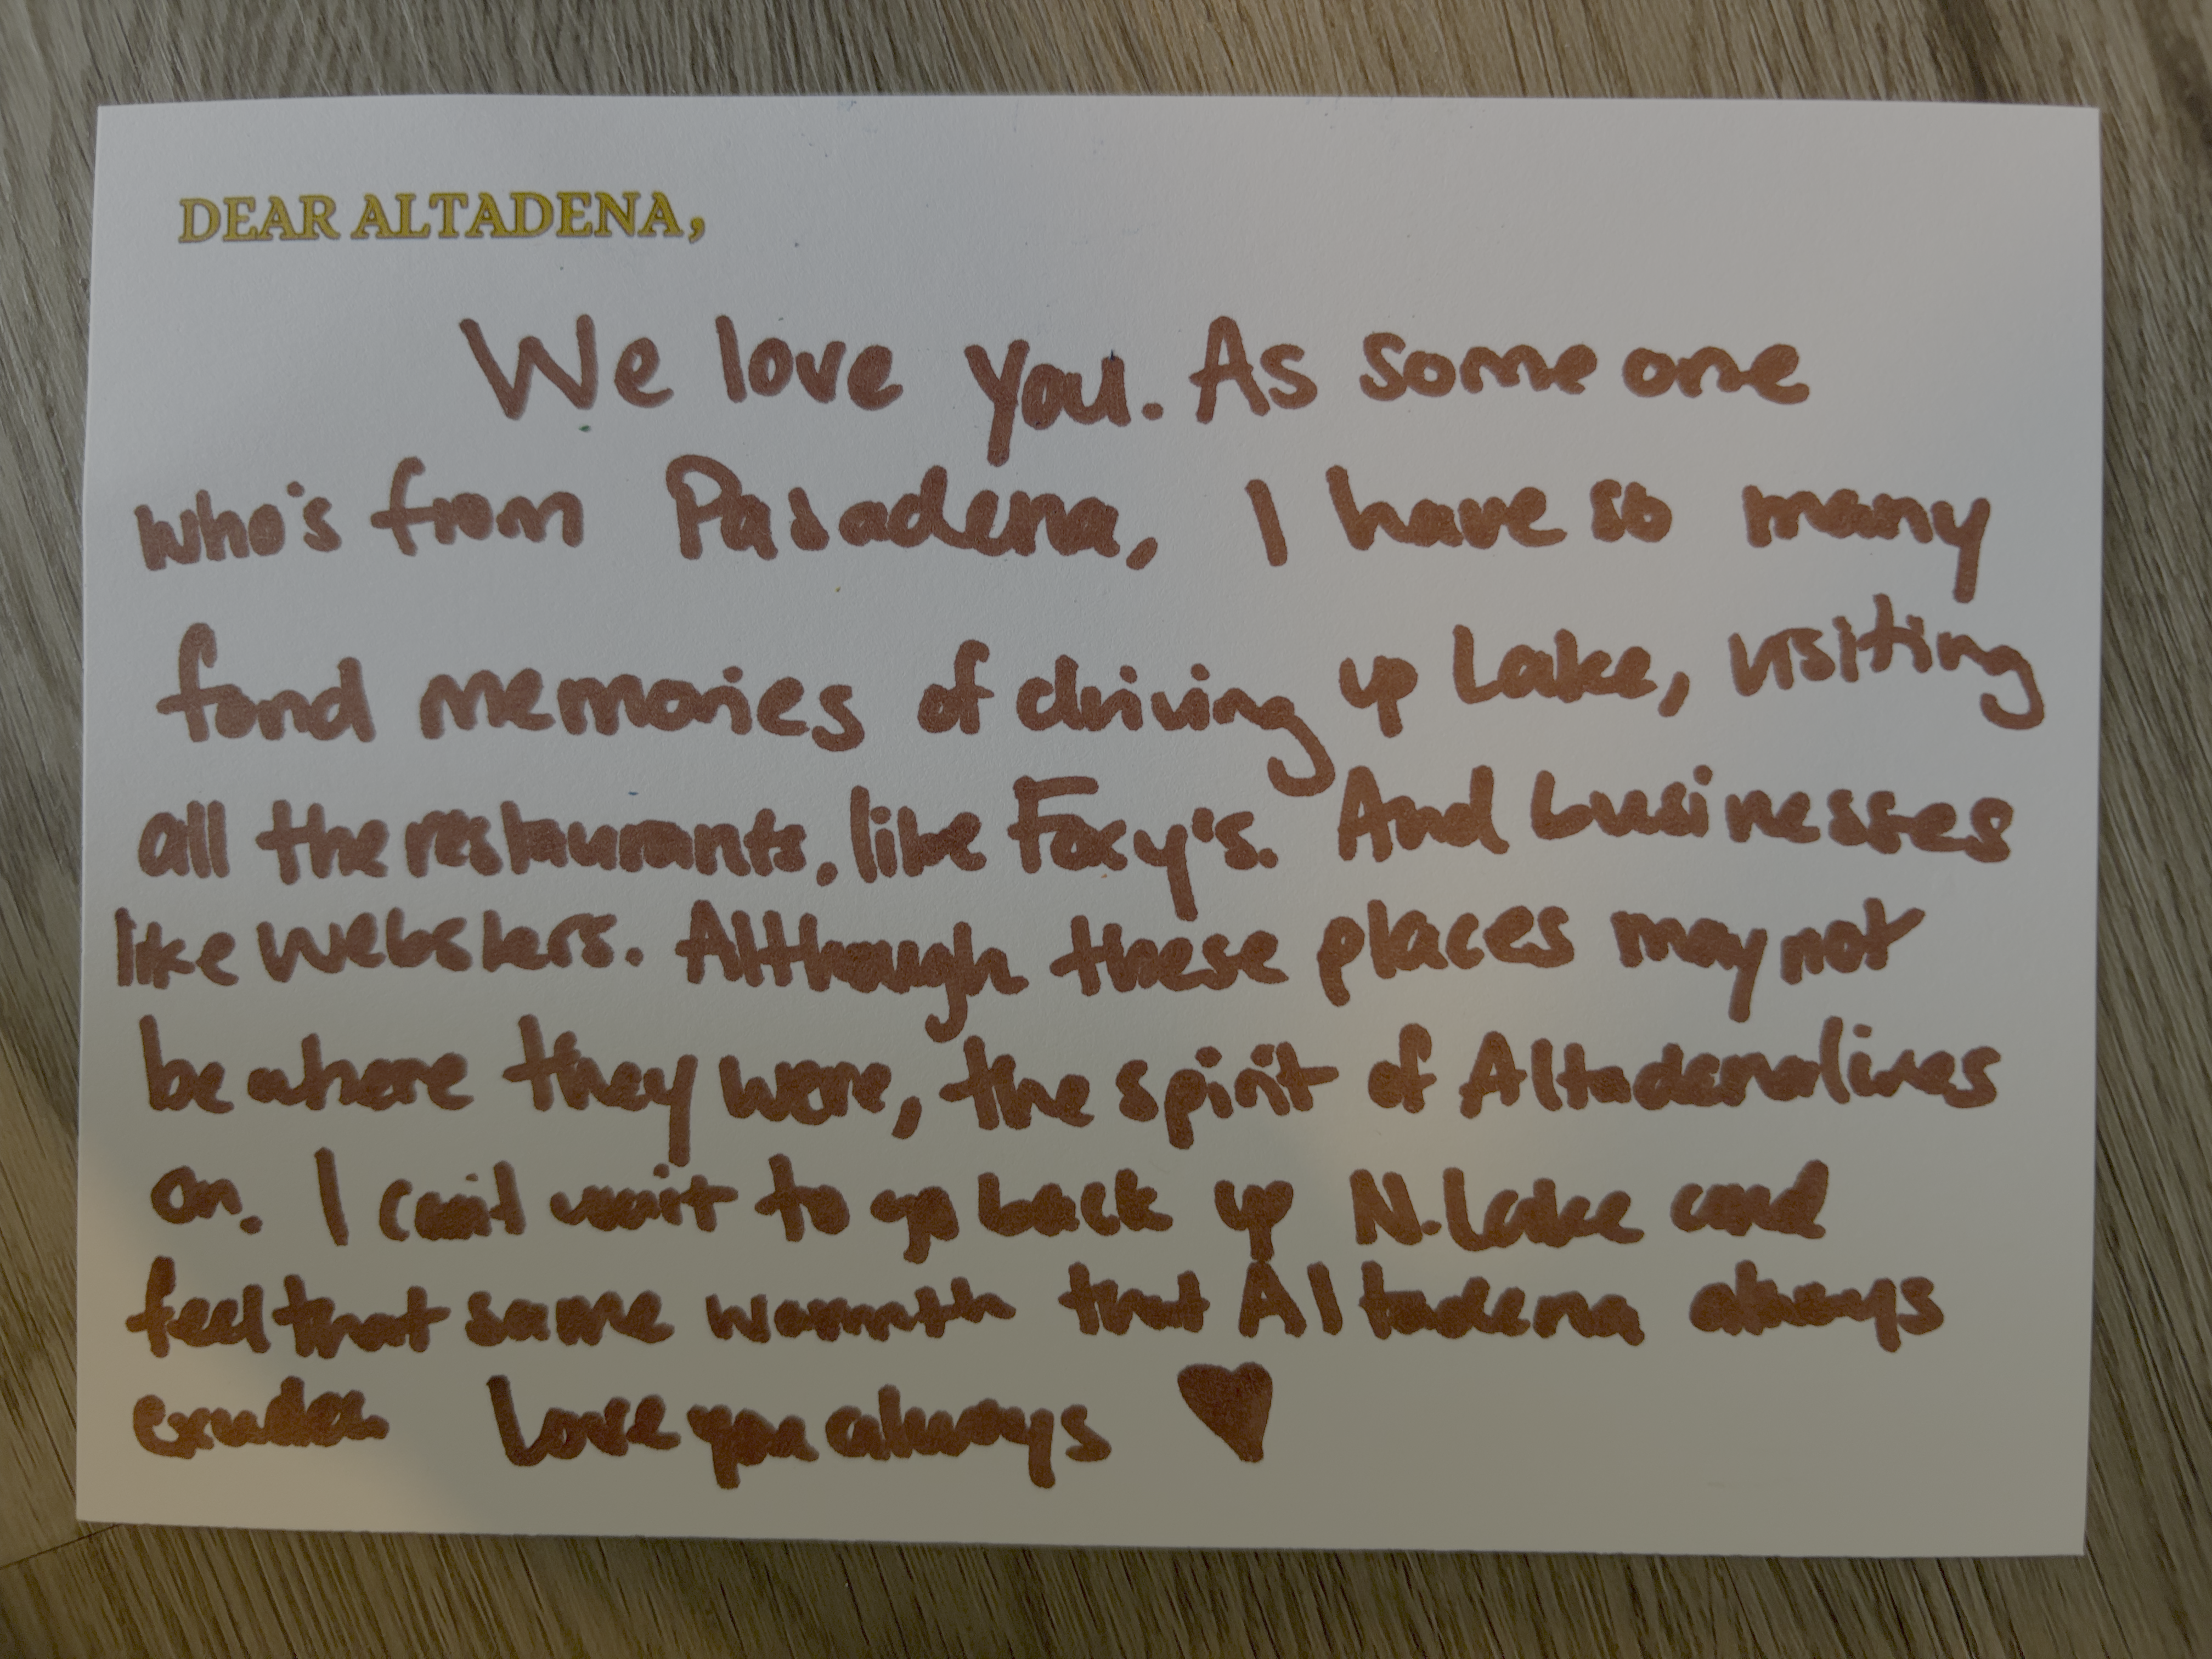 DEAR ALTADENA,
We love you. As someone
who's from Pasadena, I have so many
fond memories of driving up Lake, visiting
all the restaurants, like Foxy's. And businesses
like Websters. Although these places may not
be where they were, the spirit of Altadena lives
on. I can't wait to go back up N. Lake and
feel that same warmth that Altadena always
exudes Love you always ♥